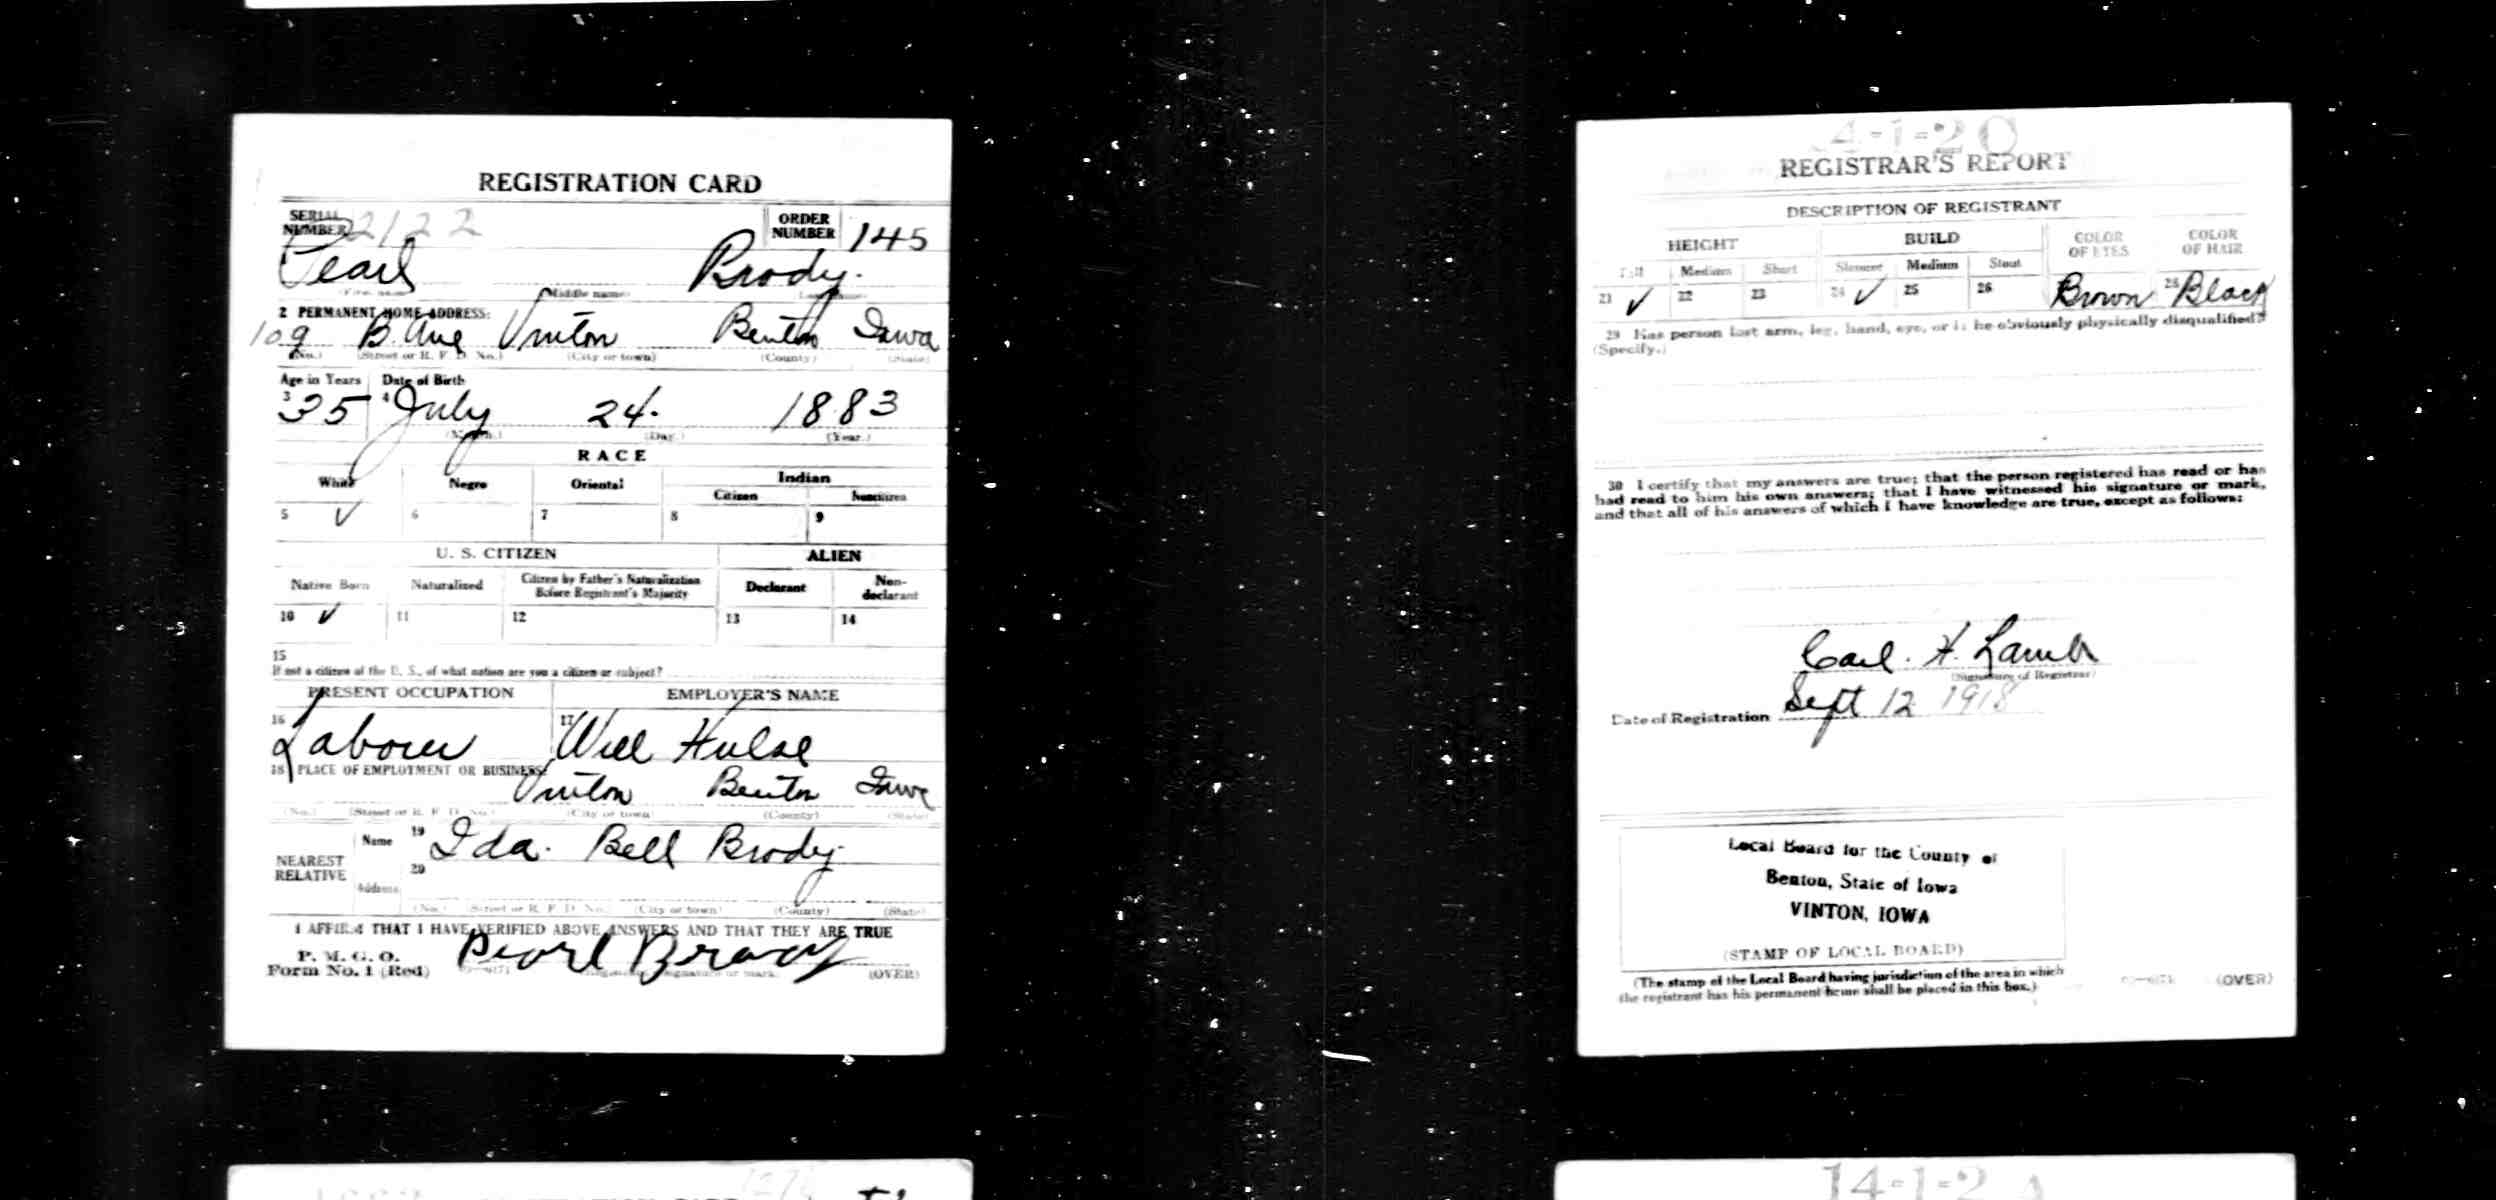 REGISTRATION CARD
SERIAL NUMBER 2122 ORDER NUMBER 145
Pearl Brody.
(First name) (Middle name) (Last name)
2 PERMANENT HOME ADDRESS:
109 B. Ave Vinton Benton Iowa
(No.) (Street or R. F. D. No.) (City or town) (County) (State)
Age in Years Date of Birth
3 35 4 July 24. 1883
(Month.) (Day.) (Year.)
RACE
White Negro Oriental Indian
Citizen Noncitizen
5 ✓ 6 7 8 9
U. S. CITIZEN ALIEN
Native Born Naturalized Citizen by Father's Naturalization Before Registrant's Majority Declarant Non-declarant
10 ✓ 11 12 13 14
15
If not a citizen of the U. S., of what nation are you a citizen or subject?
PRESENT OCCUPATION EMPLOYER'S NAME
16 Laborer 17 Will Hulse
18 PLACE OF EMPLOYMENT OR BUSINESS:
Vinton Benton Iowa
(No.) (Street or R. F. D. No.) (City or town) (County) (State)
NEAREST RELATIVE
Name 19 Ida. Bell Brody.
Address 20
(No.) (Street or R. F. D. No.) (City or town) (County) (State)
I AFFIRM THAT I HAVE VERIFIED ABOVE ANSWERS AND THAT THEY ARE TRUE
P. M. G. O.
Form No. 1 (Red) Pearl Brody (OVER)
4-1-20
REGISTRAR'S REPORT
DESCRIPTION OF REGISTRANT
HEIGHT BUILD COLOR OF EYES COLOR OF HAIR
Tall Medium Short Slender Medium Stout
21 ✓ 22 23 24 ✓ 25 26 Brown 28 Black
29 Has person lost arm, leg, hand, eye, or is he obviously physically disqualified?
(Specify.)
30 I certify that my answers are true; that the person registered has read or has
had read to him his own answers; that I have witnessed his signature or mark,
and that all of his answers of which I have knowledge are true, except as follows:
Carl. H. Lamb
(Signature of Registrar)
Date of Registration Sept 12 1918
Local Board for the County of
Benton, State of Iowa
VINTON, IOWA
(STAMP OF LOCAL BOARD)
(The stamp of the Local Board having jurisdiction of the area in which
the registrant has his permanent home shall be placed in this box.)
(OVER)
14-1-2